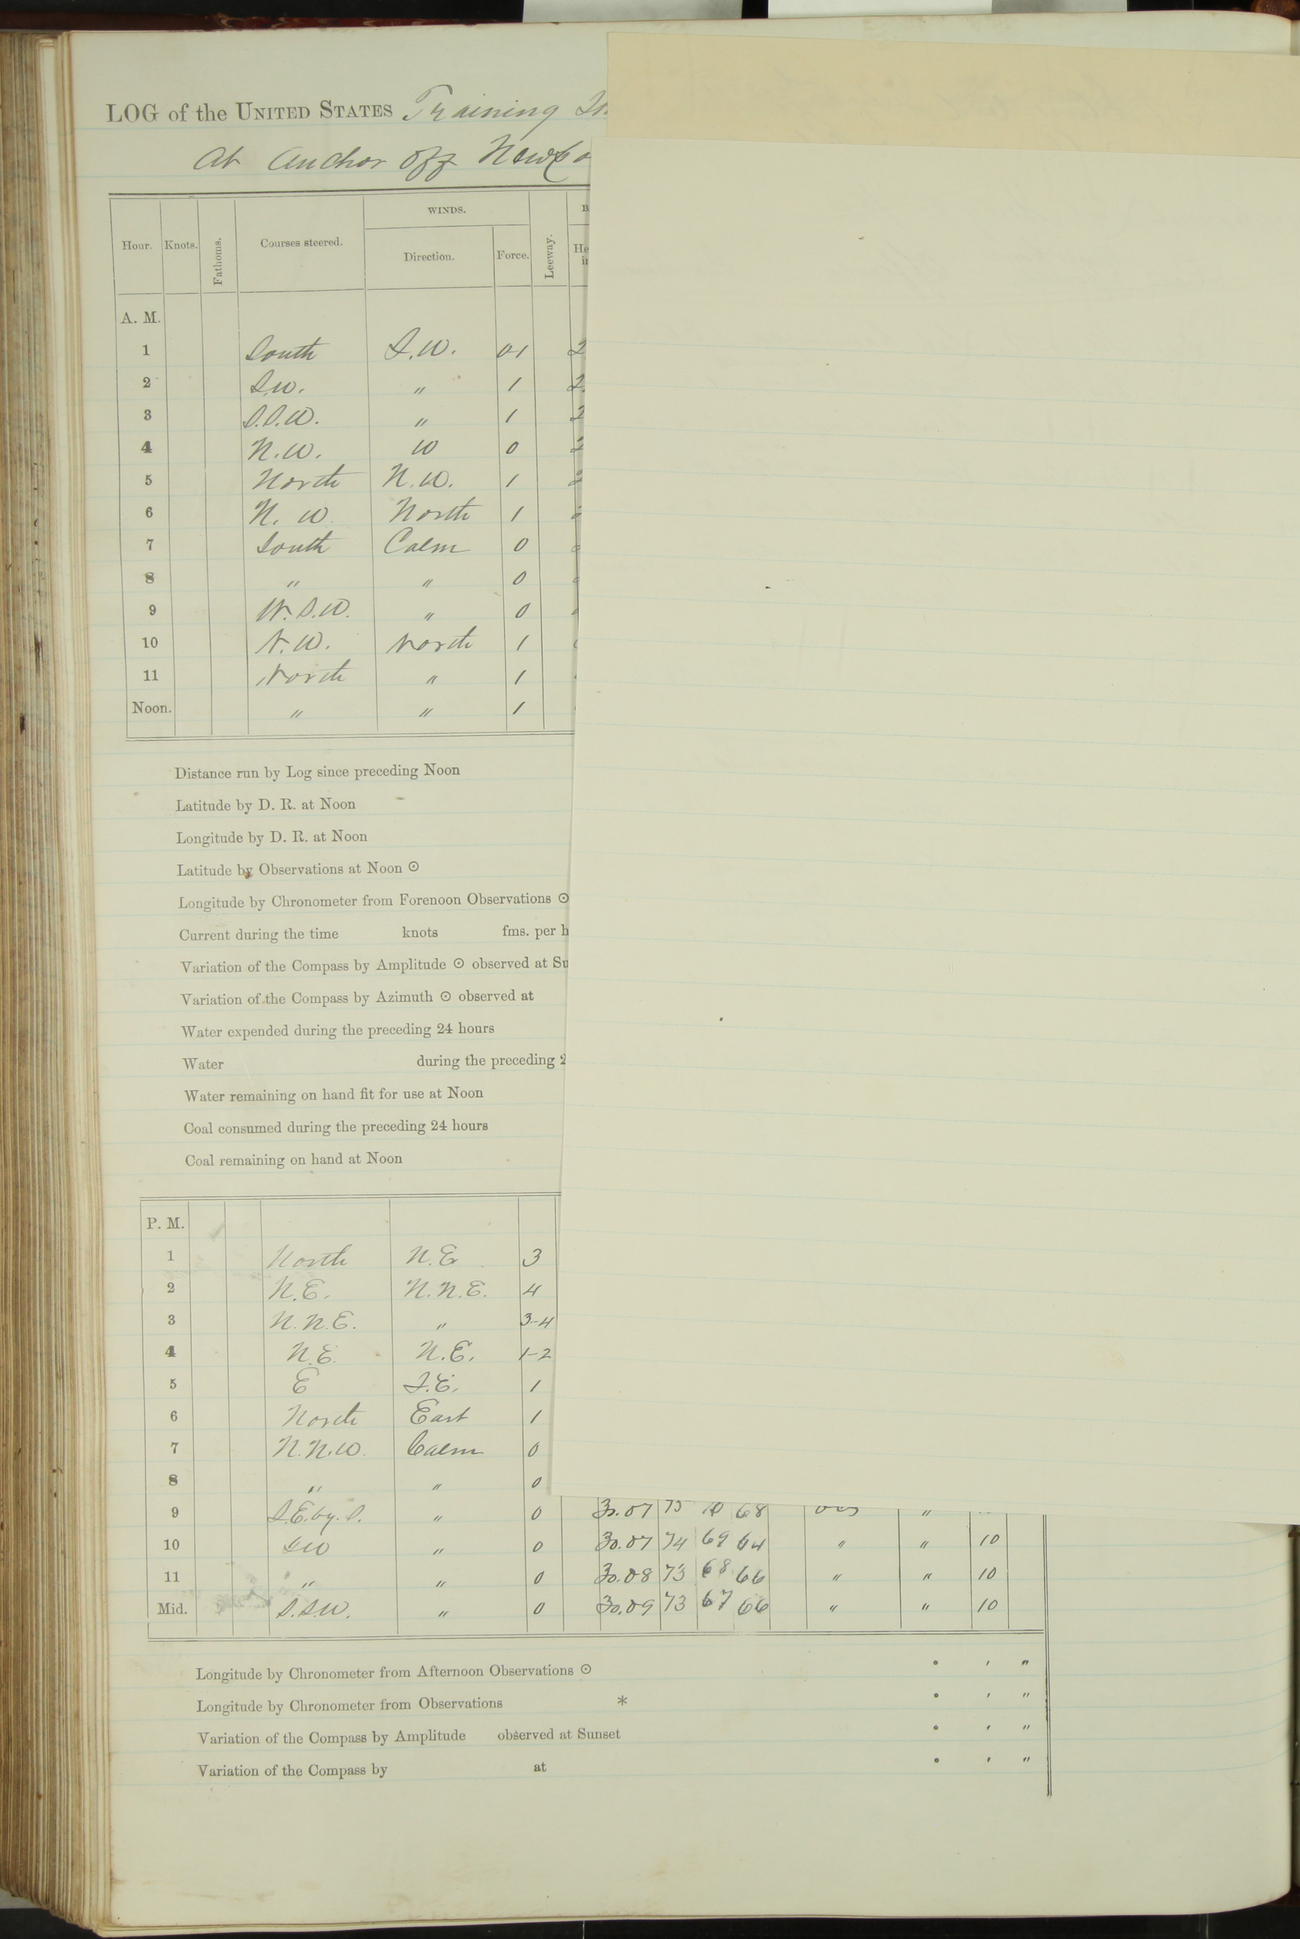 LOG of the UNITED STATES Training
At Anchor off
WINDS.
Hour. Knots. Fathoms. Courses steered. Direction. Force. Leeway.
A. M.
1 South S.W. 0-1
2 S.W. " 1
3 S.S.W. " 1
4 N.W. W 0
5 North N.W. 1
6 N. W. North 1
7 South Calm 0
8 " " 0
9 W.S.W. " 0
10 N.W. North 1
11 North " 1
Noon. " " 1
Distance run by Log since preceding Noon
Latitude by D. R. at Noon
Longitude by D. R. at Noon
Latitude by Observations at Noon ⊙
Longitude by Chronometer from Forenoon Observations ⊙
Current during the time knots fms. per h
Variation of the Compass by Amplitude ⊙ observed at Su
Variation of the Compass by Azimuth ⊙ observed at
Water expended during the preceding 24 hours
Water during the preceding 2
Water remaining on hand fit for use at Noon
Coal consumed during the preceding 24 hours
Coal remaining on hand at Noon
P. M.
1 North N.E. 3
2 N.E. N.N.E. 4
3 N.N.E. " 3-4
4 N.E. N.E. 1-2
5 E S.E. 1
6 North East 1
7 N.N.W. Calm 0
8 " " 0
9 S.E. by S. " 0 30.07 75 68 "
10 SW " 0 30.07 74 69 64 " " 10
11 " " 0 30.08 73 68 66 " " 10
Mid. S.S.W. " 0 30.09 73 67 66 " " 10
Longitude by Chronometer from Afternoon Observations ⊙ ° ' "
Longitude by Chronometer from Observations * ° ' "
Variation of the Compass by Amplitude observed at Sunset ° ' "
Variation of the Compass by at ° ' "